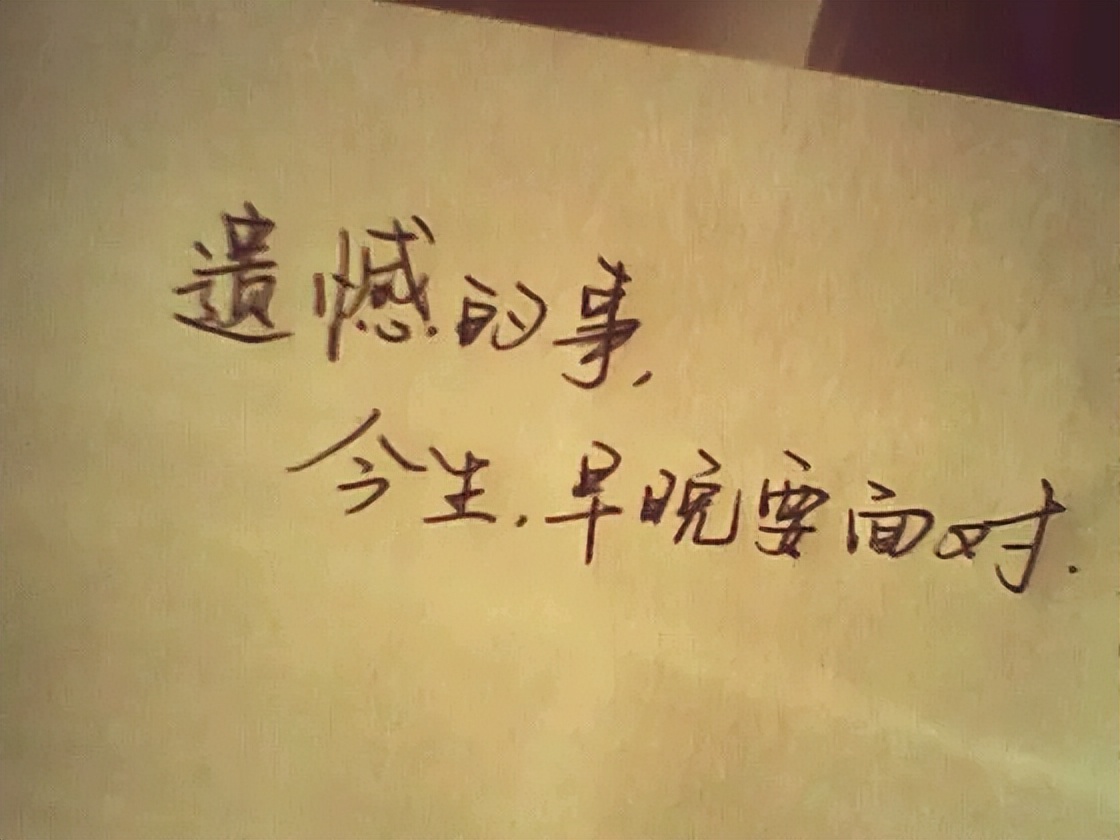 遗憾的事,
今生.早晚要面对.